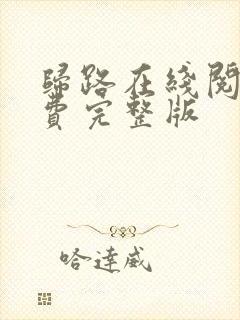 歸路在綫閱
費完整版
哈達威